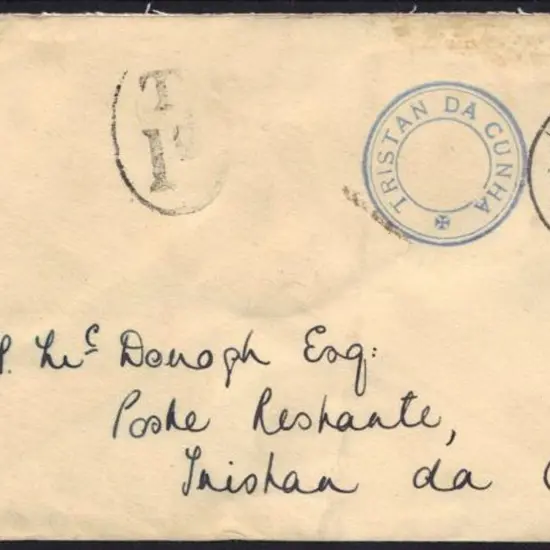 T
TRISTAN DA CUNHA
P. Mc Donogh Esq:
Poste Restante,
Tristan da C